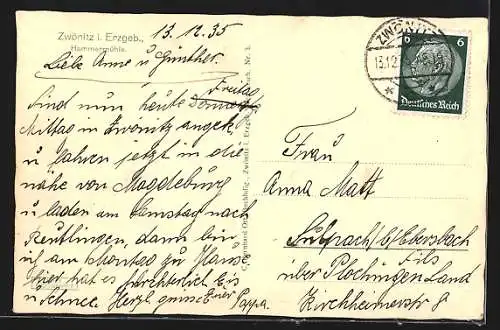 Zwönitz i. Erzgeb.,
Hammermühle.
13.12.35
Liebe Anne u Günther.
Freitag
Sind nun heute Donnerstag
Mittag in Zwönitz angek
u fahren jetzt in die
nähe von Magdeburg
u laden am Samstag nach
Reutlingen, dann bin
ich am Montag zu Haus
hier hat es fürchterlich Eis
u Schnee. Herzl grüsst Euer Pappa.
ZWÖNITZ
13.12
6 6
Deutsches Reich
Frau
Anna Matt
Sulpach b/Ebersbach
Fils
über Plochingen Land
Kirchheimerstr 8